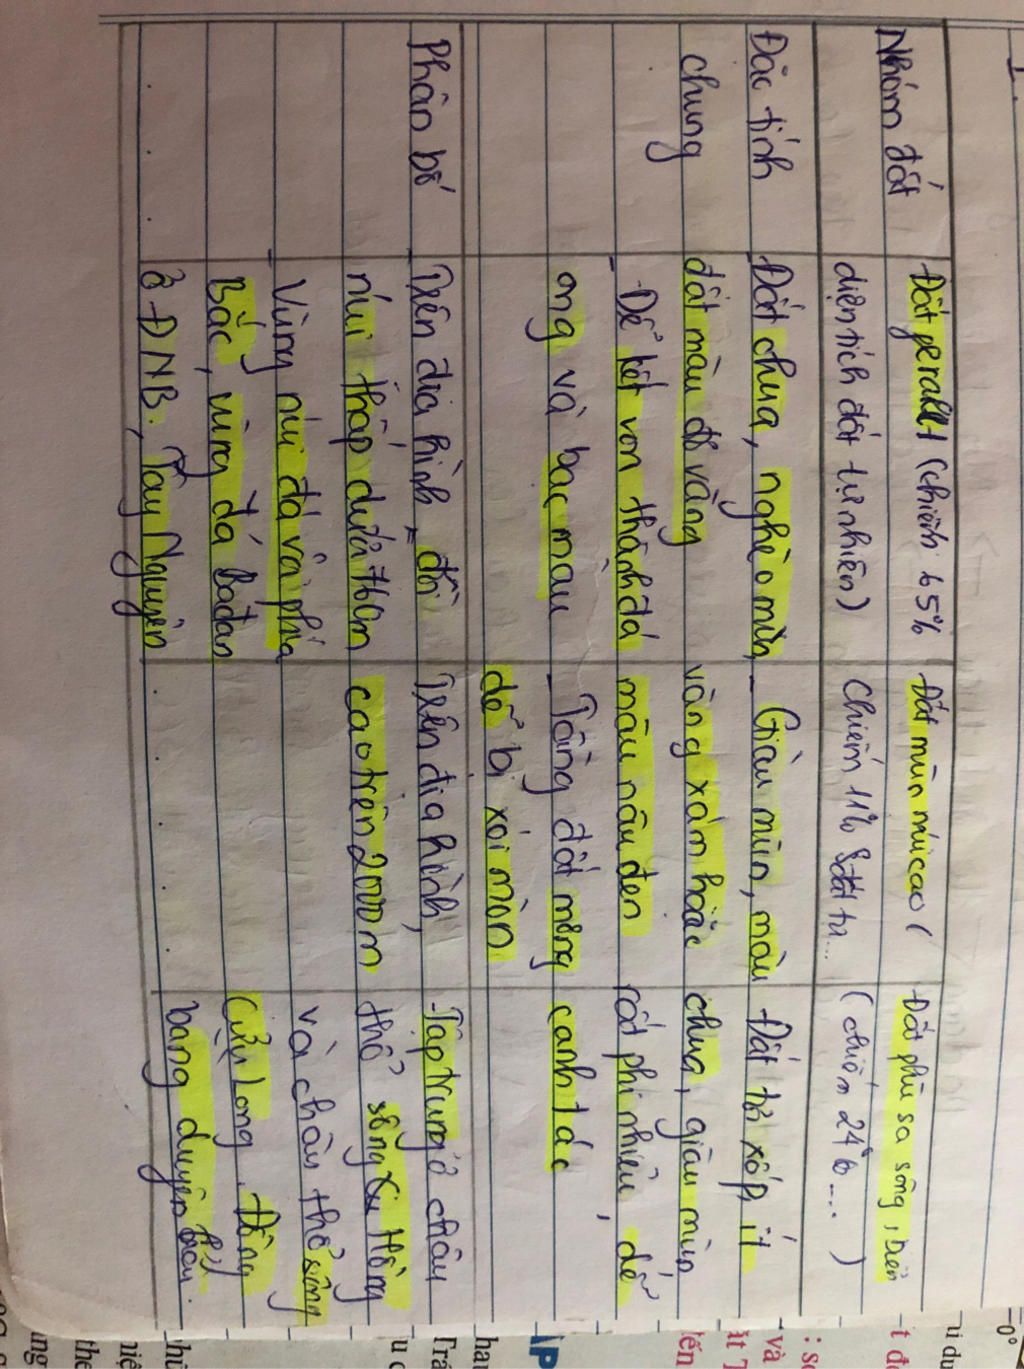 I.
Nhóm đất
Đất feralit (chiếm 65%
diện tích đất tự nhiên)
Đất mùn núi cao (
chiếm 11%
Đất phù sa sông, biển
(chiếm 24% .... )
Đặc tính
chung
- Đất chua, nghèo mùn,
đất màu đỏ vàng
- Dễ kết von thành đá
ong và bạc màu
- Giàu mùn, màu
vàng xám hoặc
màu nâu đen
- Tầng đất mỏng
dễ bị xói mòn
Đất tơi xốp, ít
chua, giàu mùn
rất phì nhiêu, dễ
canh tác
Phân bố
. . .
- Trên địa hình đồi
núi thấp dưới
- Vùng núi đá vôi phía
Bắc, vùng đá Badan
ở ĐNB, Tây Nguyên
Trên địa hình,
cao trên 2000m
. . . . .
Tập trung ở châu
thổ sông Hồng
và châu thổ sông
Cửu Long, Đồng
bằng duyên hải.
0°
ui du
: số
và
tến
IP
hau
Trá
u c
the
ung